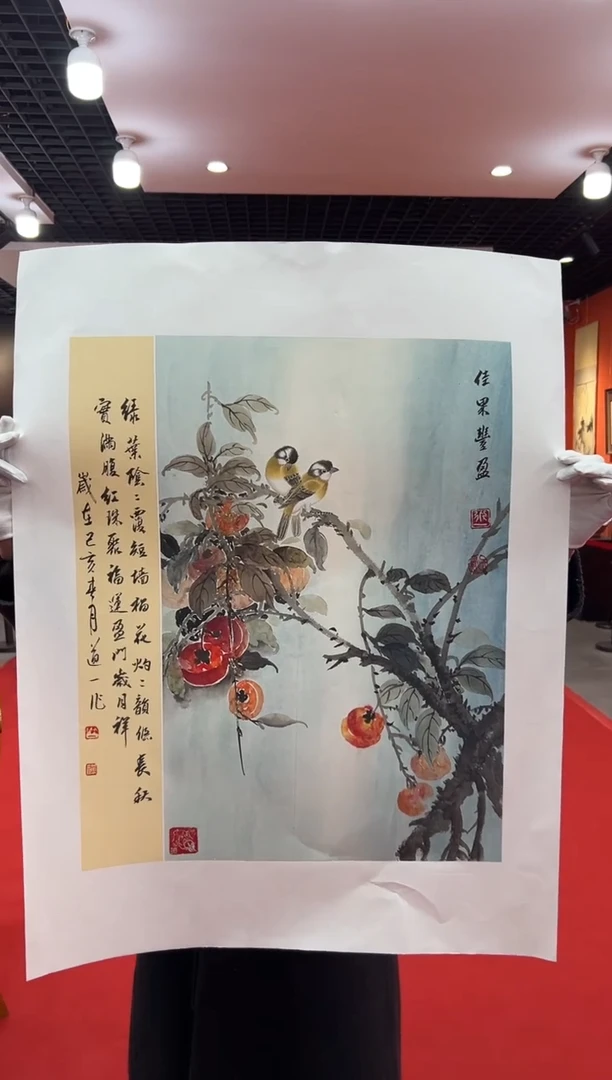 佳果豐盈
绿葉陰〻覆短墙榴花灼〻韻悠長秋
實滿腹紅珠聚福運盈门歲月祥
歲在己亥春月道一作